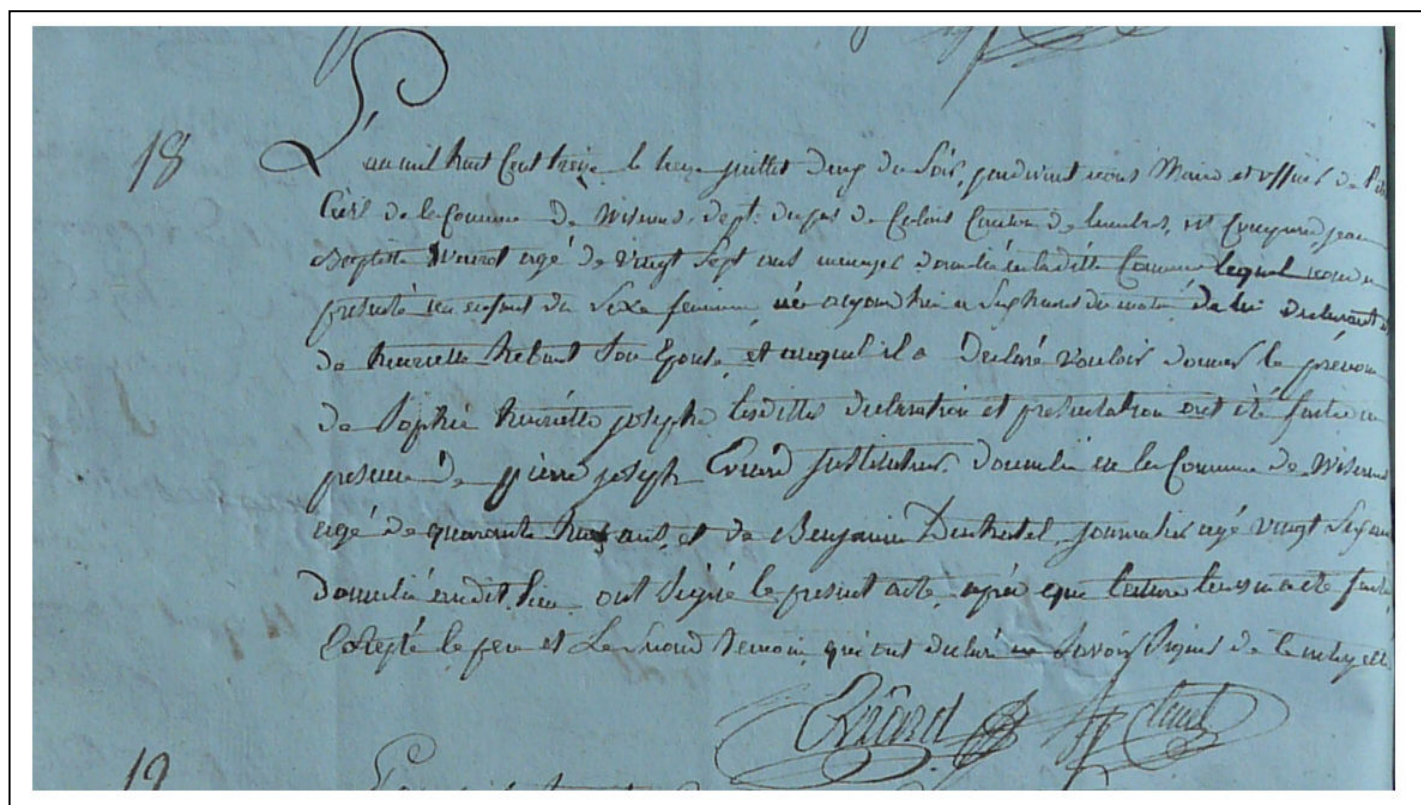 18
L'an mil huit Cent treize le treize juillet du Soir, pardevant nous Maire et officier de l'état
Civil de la Commune de Wismes, dept. du pas de Calais Canton de lumbres, est Comparu jean
Baptiste agé de Vingt Sept ans menager domicilié en laditte Commune lequel nous a
presenté un enfant du Sexe feminin, né aujourd'hui a Six heures du matin, de lui declarant et
de henriette Son Epouse, et auquel il a declaré vouloir donner le prénom
de Sophie henriette joseph lesdittes declaration et presentation ont été faite en
presence de pierre joseph Evrard Instituteur domicilié en la Commune de Wismes
agé de quarante ans, et de Benjamin journalier agé vingt Six ans
domicilié audit lieu ont Signé le present acte, après que lecture leur en a été faite,
Excepté le pere et Le Second temoin qui ont declaré ne Savoir Signer de
Evrard
19